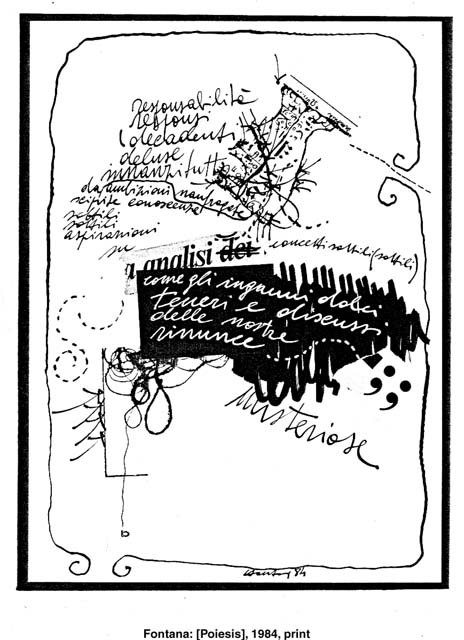 responsabilità
(decadenti
deluse
innanzitutto
da ambizioni naufragate
scipite conoscenze
sottili
sottili
aspirazioni
su
analisi dei concetti sottili (sottili)
come gli inganni dolci
teneri e discussi
delle nostre
rinunce
misteriose
84
Fontana: [Poiesis], 1984, print